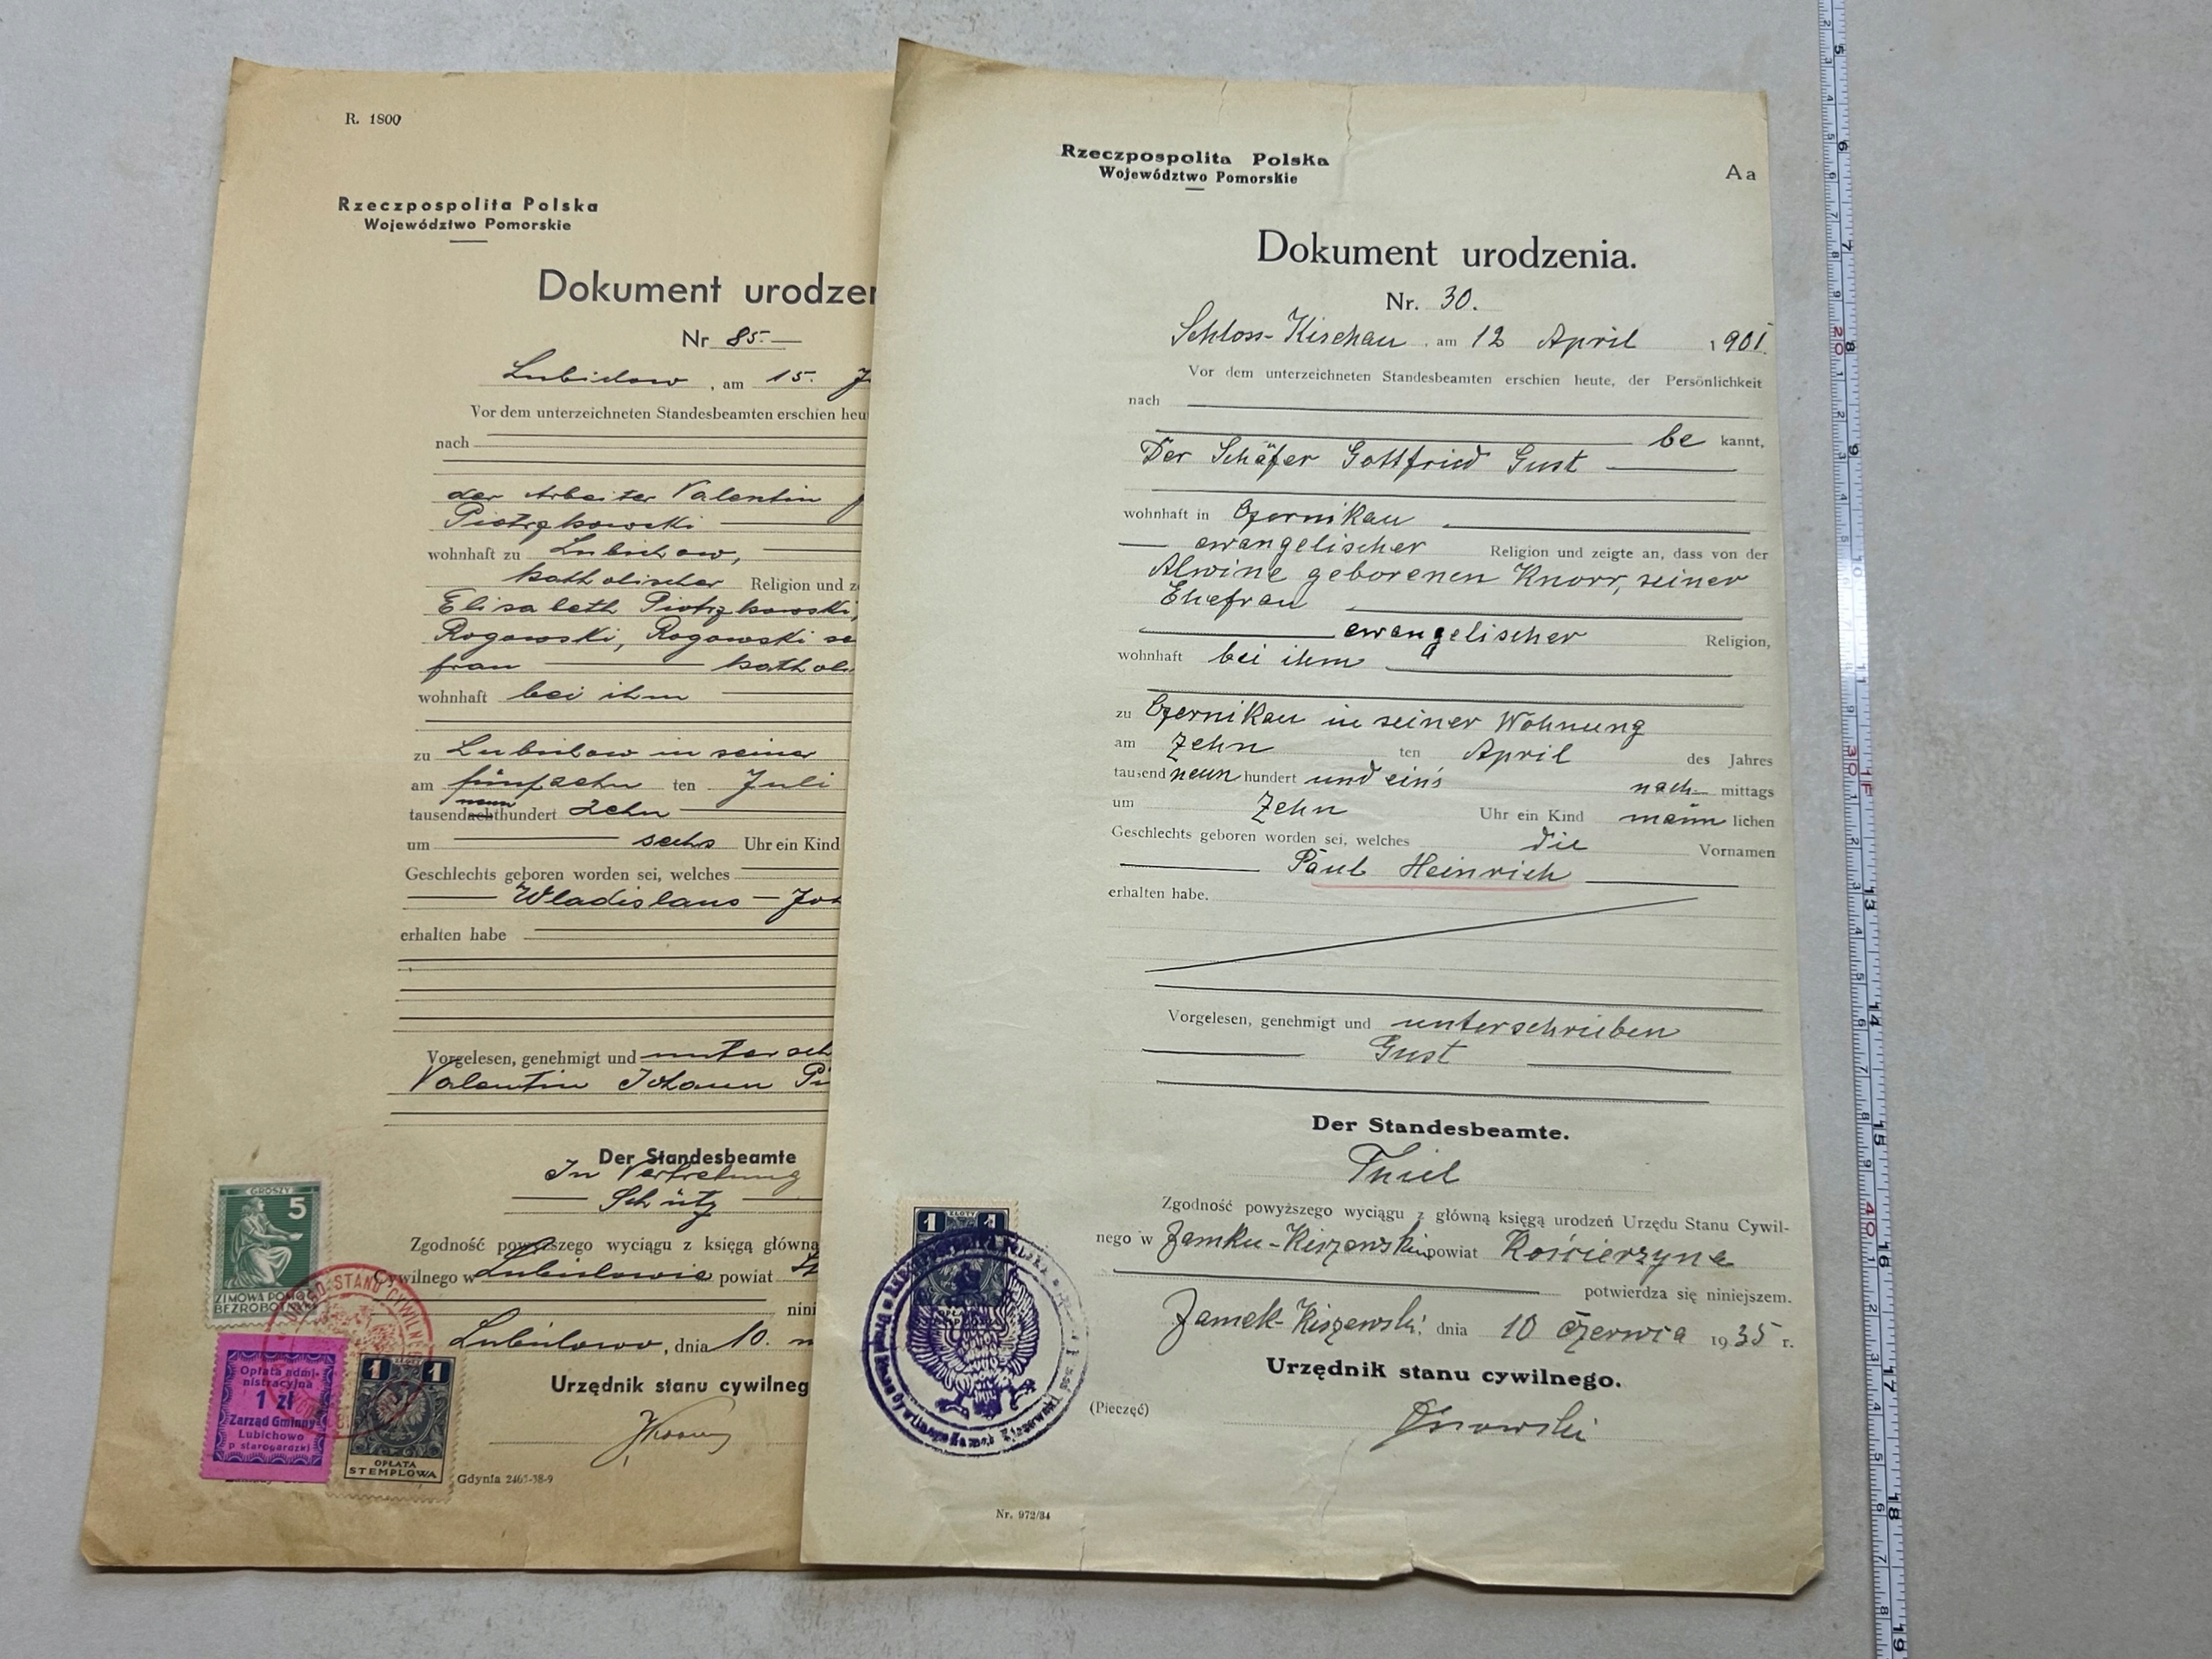 R. 1800
Rzeczpospolita Polska
Województwo Pomorskie
Dokument urodzen
Nr 85.
Lubichow, am 15. J
Vor dem unterzeichneten Standesbeamten erschien heu
nach
der Arbeiter Valentin
Piotrzkowski
wohnhaft zu Lubichow,
katholischer Religion und z
Elisabeth Piotrzkowski,
Rogowski, Rogowski se
frau katholi
wohnhaft bei ihm
zu Lubichow in seiner
am fünfzehn ten Juli
neun
tausendachthundert zehn
um sechs Uhr ein Kind
Geschlechts geboren worden sei, welches
Wladislaus - Joh
erhalten habe
Vorgelesen, genehmigt und untersch
Valentin Johann Pi
Der Standesbeamte
In Vertretung
Schütz
Zgodność powyższego wyciągu z księgą główną
Cywilnego w Lubichowie powiat St
nini
Lubichowo, dnia 10. m
Urzędnik stanu cywilneg
Gdynia 2465-38-9
GROSZY 5
ZIMOWA POMOC
BEZROBOTNYM
STANU CYWILNE
Opłata admi-
nistracyjna
1 zł
Zarząd Gminny
Lubichowo
p starogardzki
1 ZŁOTY 1
OPŁATA
STEMPLOWA
Rzeczpospolita Polska
Województwo Pomorskie
Aa
Dokument urodzenia.
Nr. 30.
Schloss-Kischau, am 12 April 1901.
Vor dem unterzeichneten Standesbeamten erschien heute, der Persönlichkeit
nach
be kannt,
Der Schäfer Gottfried Gust
wohnhaft in Czernikau
ewangelischer Religion und zeigte an, dass von der
Alwine geborenen Knorr, seiner
Ehefrau
ewangelischer Religion,
wohnhaft bei ihm
zu Czernikau in seiner Wohnung
am Zehn ten April des Jahres
tausend neun hundert und eins nach mittags
um Zehn Uhr ein Kind männ lichen
Geschlechts geboren worden sei, welches die Vornamen
Paul Heinrich
erhalten habe.
Vorgelesen, genehmigt und unterschrieben
Gust
Der Standesbeamte.
Thiel
Zgodność powyższego wyciągu z główną księgą urodzeń Urzędu Stanu Cywil-
nego w Zamku-Kiszewskim powiat Kościerzyna
potwierdza się niniejszem.
Zamek-Kiszewski, dnia 10 czerwca 1935 r.
Urzędnik stanu cywilnego.
(Pieczęć)
Osowski
Nr. 972/34
1 ZŁOTY 1